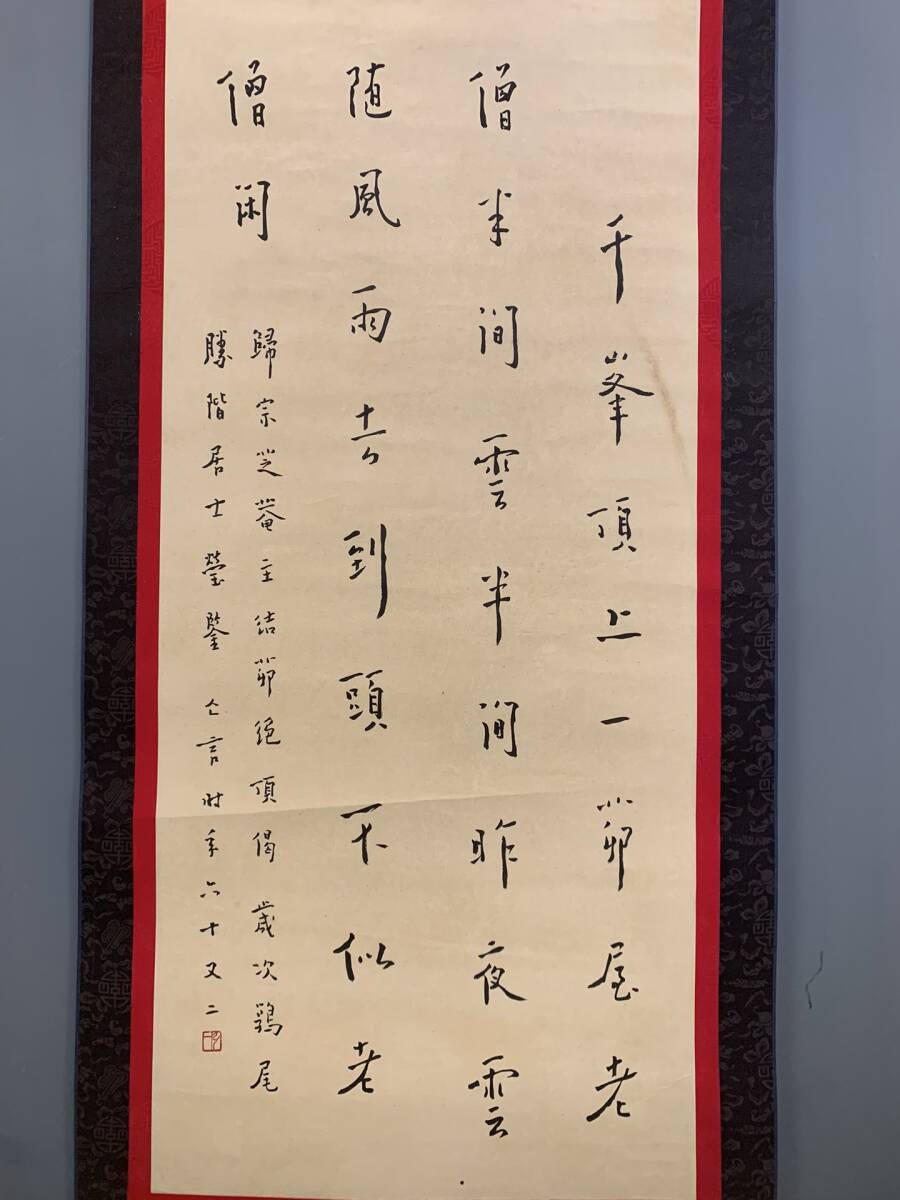 千峯頂上一茆屋老
僧半間雲半間昨夜雲
随風雨去到頭不似老
僧闲
歸宗芝菴主结茆绝頂偈 歲次鶉尾
勝階居士瑩鑒 亼言时年六十又二